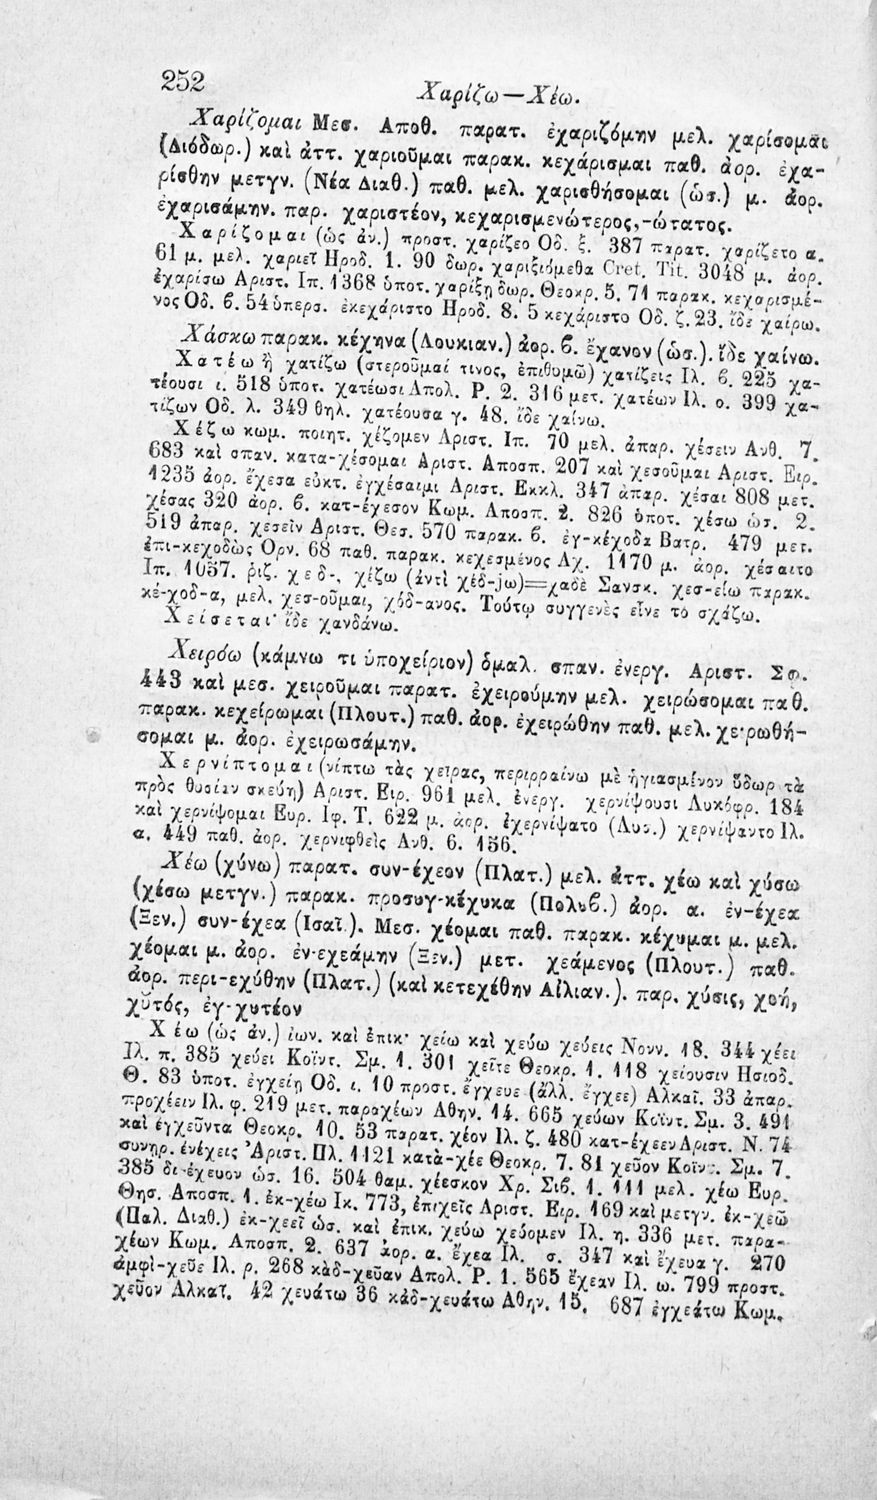 252
Χαρίζω—Χέω.
Χαρίζομαι Μεσ. Αποθ. παρατ. ἐχαριζόμην μελ. χαρίσομαι
(Διόδωρ.) καὶ ἀττ. χαριοῦμαι παρακ. κεχάρισμαι παθ. ἀορ. ἐχα-
ρίσθην μετγν. (Νέα Διαθ.) παθ. μελ. χαρισθήσομαι (ὡσ.) μ. ἀορ.
ἐχαρισάμην. παρ. χαριστέον, κεχαρισμενώτερος,-ώτατος.
Χαρίζομαι (ὡς ἀν.) προστ. χαρίζεο Οδ. ξ. 387 παρατ. χαρίζετο α.
61 μ. μελ. χαριεῖ Ηροδ. 1. 90 δωρ. χαριξιόμεθα Cret. Tit. 3048 μ. ἀορ.
ἐχαρίσω Αριστ. Ιπ. 1368 ὑποτ. χαρίξῃ δωρ. Θεοκρ. 5. 71 παρακ. κεχαρισμέ-
νος Οδ. ϐ. 54 ὑπερσ. ἐκεχάριστο Ηροδ. 8. 5 κεχάριστο Οδ. ζ. 23. ἴδε χαίρω.
Χάσκω παρακ. κέχηνα (Λουκιαν.) ἀορ. ϐ. ἔχανον (ὡσ.). ἴδε χαίνω.
Χατέω ἢ χατίζω (στεροῦμαί τινος, ἐπιθυμῶ) χατίζεις Ιλ. ϐ. 225 χα-
τέουσι ι. 518 ὑποτ. χατέωσι Απολ. Ρ. 2. 316 μετ. χατέων Ιλ. ο. 399 χα-
τίζων Οδ. λ. 349 θηλ. χατέουσα γ. 48. ἴδε χαίνω.
Χέζω κωμ. ποιητ. χέζομεν Αριστ. Ιπ. 70 μελ. ἀπαρ. χέσειν Ανθ. 7.
683 καὶ σπαν. κατα-χέσομαι Αριστ. Αποσπ. 207 καὶ χεσοῦμαι Αριστ. Ειρ.
1235 ἀορ. ἔχεσα εὐκτ. ἐγχέσαιμι Αριστ. Εκκλ. 347 ἀπαρ. χέσαι 808 μετ.
χέσας 320 ἀορ. ϐ. κατ-έχεσον Κωμ. Αποσπ. 2. 826 ὑποτ. χέσω ὡσ. 2.
519 ἀπαρ. χεσεῖν Αριστ. Θεσ. 570 παρακ. ϐ. ἐγ-κέχοδα Βατρ. 479 μετ.
ἐπι-κεχοδὼς Ορν. 68 παθ. παρακ. κεχεσμένος Αχ. 1170 μ. ἀορ. χέσαιτο
Ιπ. 1057. ῥιζ. χεδ-, χέζω (ἀντὶ χέδ-jω)=χαδὲ Σανσκ. χεσ-είω παρακ.
κέ-χοδ-α, μελ. χεσ-οῦμαι, χόδ-ανος. Τούτῳ συγγενὲς εἶνε τὸ σχάζω.
Χείσεται· ἴδε χανδάνω.
Χειρόω (κάμνω τι ὑποχείριον) ὁμαλ. σπαν. ἐνεργ. Αριστ. Σφ.
443 καὶ μεσ. χειροῦμαι παρατ. ἐχειρούμην μελ. χειρώσομαι παθ.
παρακ. κεχείρωμαι (Πλουτ.) παθ. ἀορ. ἐχειρώθην παθ. μελ. χειρωθή-
σομαι μ. ἀορ. ἐχειρωσάμην.
Χερνίπτομαι (νίπτω τὰς χεῖρας, περιρραίνω μὲ ἡγιασμένον ὕδωρ τὰ
πρὸς θυσίαν σκεύη) Αριστ. Ειρ. 961 μελ. ἐνεργ. χερνίψουσι Λυκόφρ. 184
καὶ χερνίψομαι Ευρ. Ιφ. Τ. 622 μ. ἀορ. ἐχερνίψατο (Λυσ.) χερνίψαντο Ιλ.
α. 449 παθ. ἀορ. χερνιφθεὶς Ανθ. 6. 156.
Χέω (χύνω) παρατ. συν-έχεον (Πλατ.) μελ. ἀττ. χέω καὶ χύσω
(χέσω μετγν.) παρακ. προσυγ-κέχυκα (Πολυϐ.) ἀορ. α. ἐν-έχεα
(Ξεν.) συν-έχεα (Ισαῖ.). Μεσ. χέομαι παθ. παρακ. κέχυμαι μ. μελ.
χέομαι μ. ἀορ. ἐν-εχεάμην (Ξεν.) μετ. χεάμενος (Πλουτ.) παθ.
ἀορ. περι-εχύθην (Πλατ.) (καὶ κετεχέθην Αἰλιαν.). παρ. χύσις, χοή,
χῠτός, ἐγ-χυτέον
Χέω (ὡς ἀν.) ἰων. καὶ ἐπικ· χείω καὶ χεύω χεύεις Νονν. 18. 344 χέει
Ιλ. π. 385 χεύει Κοΐντ. Σμ. 1. 301 χεῖτε Θεοκρ. 1. 118 χείουσιν Ησιοδ.
Θ. 83 ὑποτ. ἐγχείῃ Οδ. ι. 10 προστ. ἔγχευε (ἀλλ. ἔγχεε) Αλκαῖ. 33 ἀπαρ.
προχέειν Ιλ. φ. 219 μετ. παραχέων Αθην. 14. 665 χεύων Κοΐντ. Σμ. 3. 491
καὶ ἐγχεῦντα Θεοκρ. 10. 53 παρατ. χέον Ιλ. ζ. 480 κατ-έχεεν Αριστ. Ν. 74
συνηρ. ἐνέχεις Ἀριστ. Πλ. 1121 κατὰ-χέε Θεοκρ. 7. 81 χεῦον Κοΐντ. Σμ. 7.
385 δι-έχευον ὡσ. 16. 504 θαμ. χέεσκον Χρ. Σιϐ. 1. 111 μελ. χέω Ευρ.
Θησ. Αποσπ. 1. ἐκ-χέω Ικ. 773, ἐπιχεῖς Αριστ. Ειρ. 169 καὶ μετγν. ἐκ-χεῶ
(Παλ. Διαθ.) ἐκ-χεεῖ ὡσ. καὶ ἐπικ. χεύω χεύομεν Ιλ. η. 336 μετ. παρα-
χέων Κωμ. Αποσπ. 2. 637 ἀορ. α. ἔχεα Ιλ. σ. 347 καὶ ἔχευα γ. 270
ἀμφὶ-χεῦε Ιλ. ρ. 268 κὰδ-χεῦαν Απολ. Ρ. 1. 565 ἔχεαν Ιλ. ω. 799 προστ.
χεῦον Αλκαῖ. 42 χευάτω 36 κὰδ-χευάτω Αθην. 15. 687 ἐγχεάτω Κωμ.